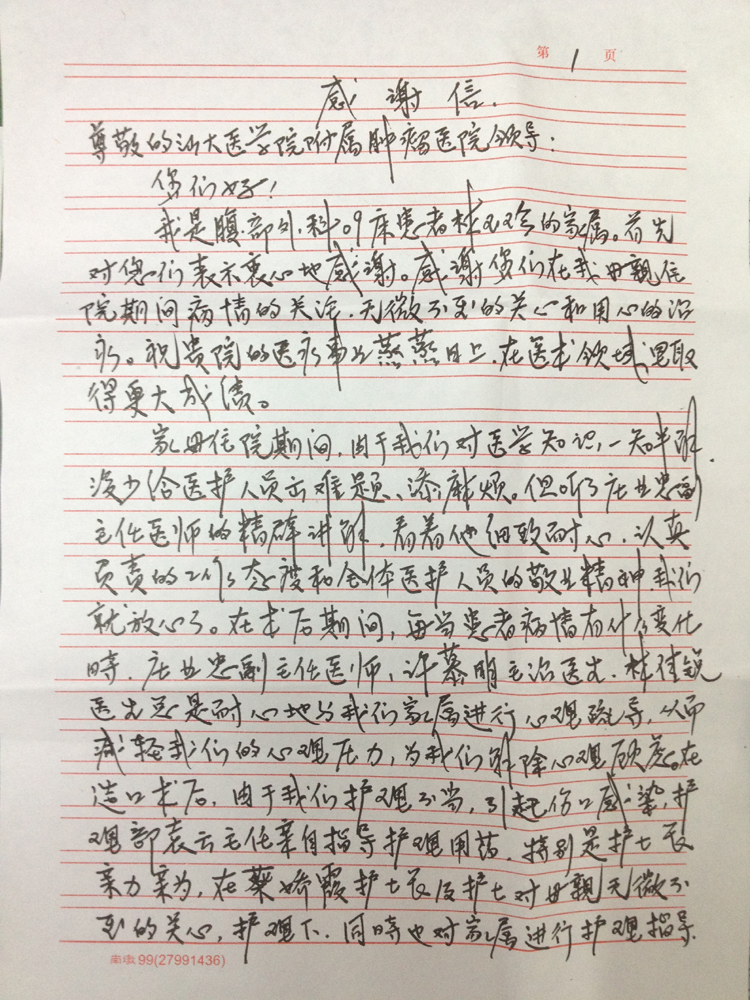 第 1 页
感谢信.
尊敬的汕大医学院附属肿瘤医院领导:
您们好!
我是腹部外科09床患者林玉珍的家属。首先
对您们表示衷心地感谢。感谢您们在我母亲住
院期间病情的关注、无微不至的关心和用心的治
疗。祝贵院的医疗事业蒸蒸日上,在医术领域里取
得更大成绩。
家母住院期间,由于我们对医学知识,一知半解.
没少给医护人员出难题、添麻烦。但听了庄业忠副
主任医师的精辟讲解,看着他细致耐心、认真
负责的工作态度和全体医护人员的敬业精神,我们
就放心了。在术后期间,每当患者病情有什么变化
时.庄业忠副主任医师,许慕明主治医生.林佳锐
医生总是耐心地与我们家属进行心理疏导,从而
减轻我们的心理压力,为我们解除心理顾虑。在
造口术后,由于我们护理不当,引起伤口感染,护
理部袁云主任亲自指导护理用药.特别是护士长
亲力亲为,在蔡娇霞护士长及护士对母亲无微不
至的关心,护理下.同时也对家属进行护理指导.
99(27991436)